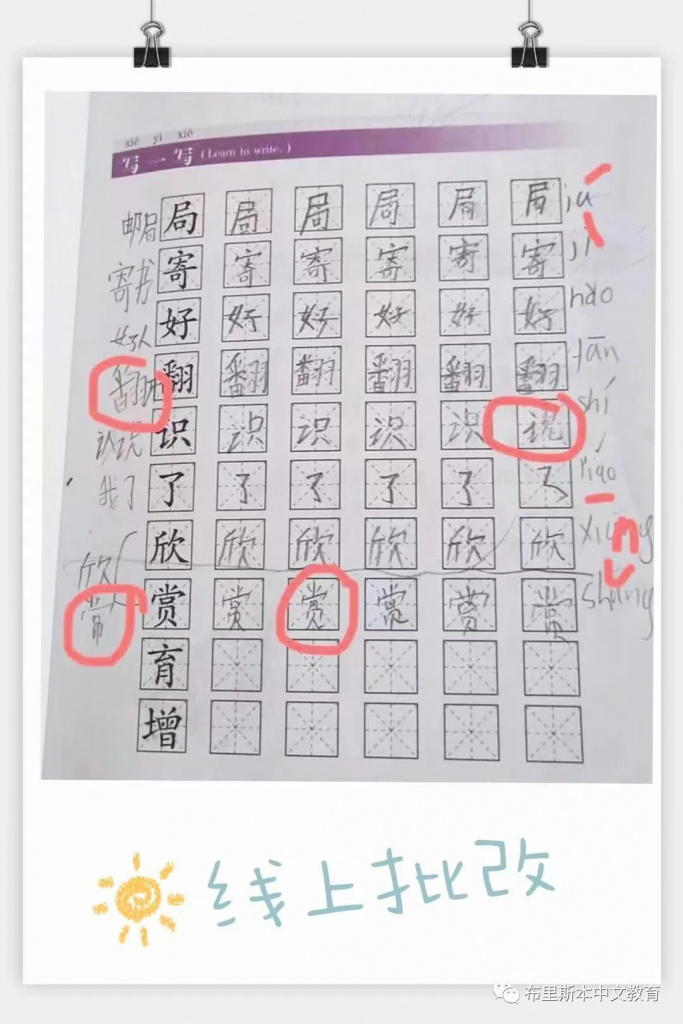 xiě yi xiě
写一写 (Learn to write.)
邮局 局 局 局 局 局 局 jú
寄书 寄 寄 寄 寄 寄 寄 jì
好人 好 好 好 好 好 好 hǎo
翻 翻 翻 翻 翻 翻 fān
认识 识 识 识 识 识 shí
我了 了 了 了 了 了 了
欣 欣 欣 欣 欣 欣 欣
赏 赏 赏 赏 赏 赏
育
增
线上批改
布里斯本中文教育